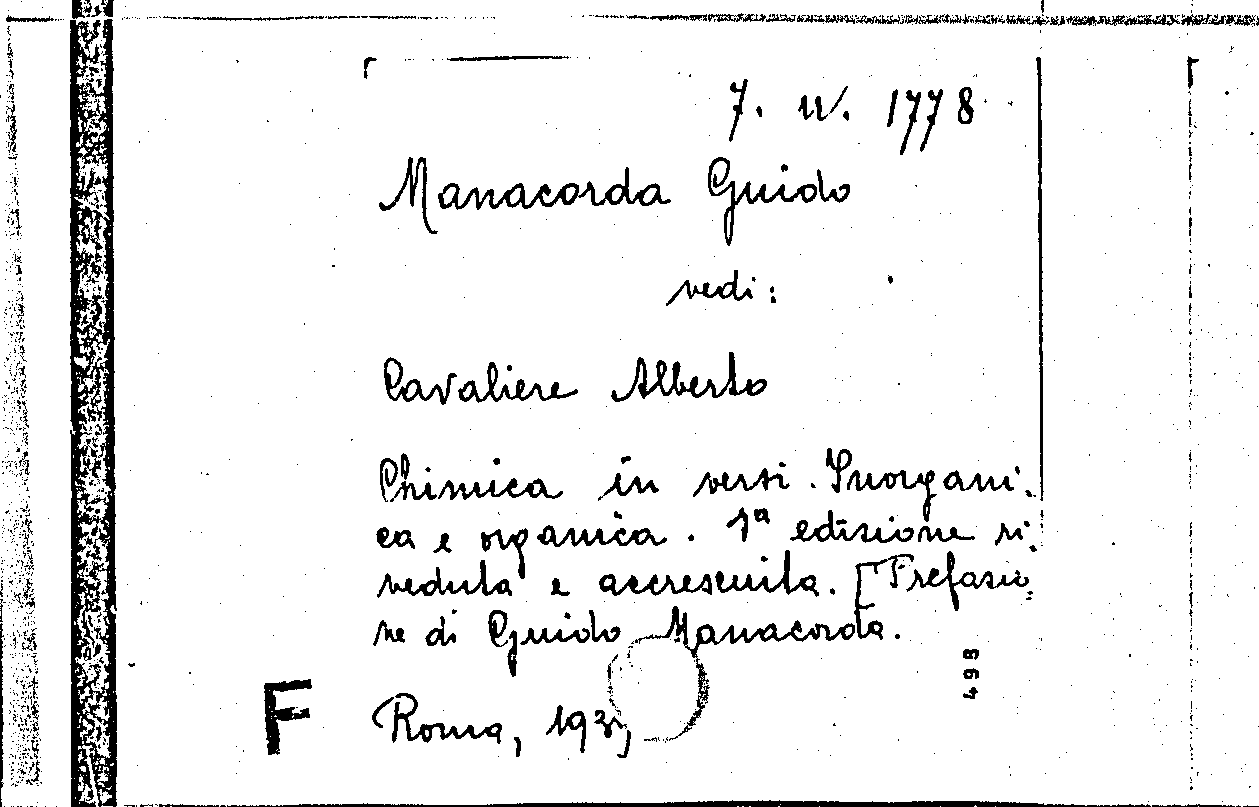 7. N. 1778
Manacorda Guido
vedi:
Cavaliere Alberto
Chimica in versi. Inorgani.
ca e organica. 1ª edizione ri.
veduta e accresciuta. [Prefazio
ne di Guido Manacorda.
498
F
Roma, 193